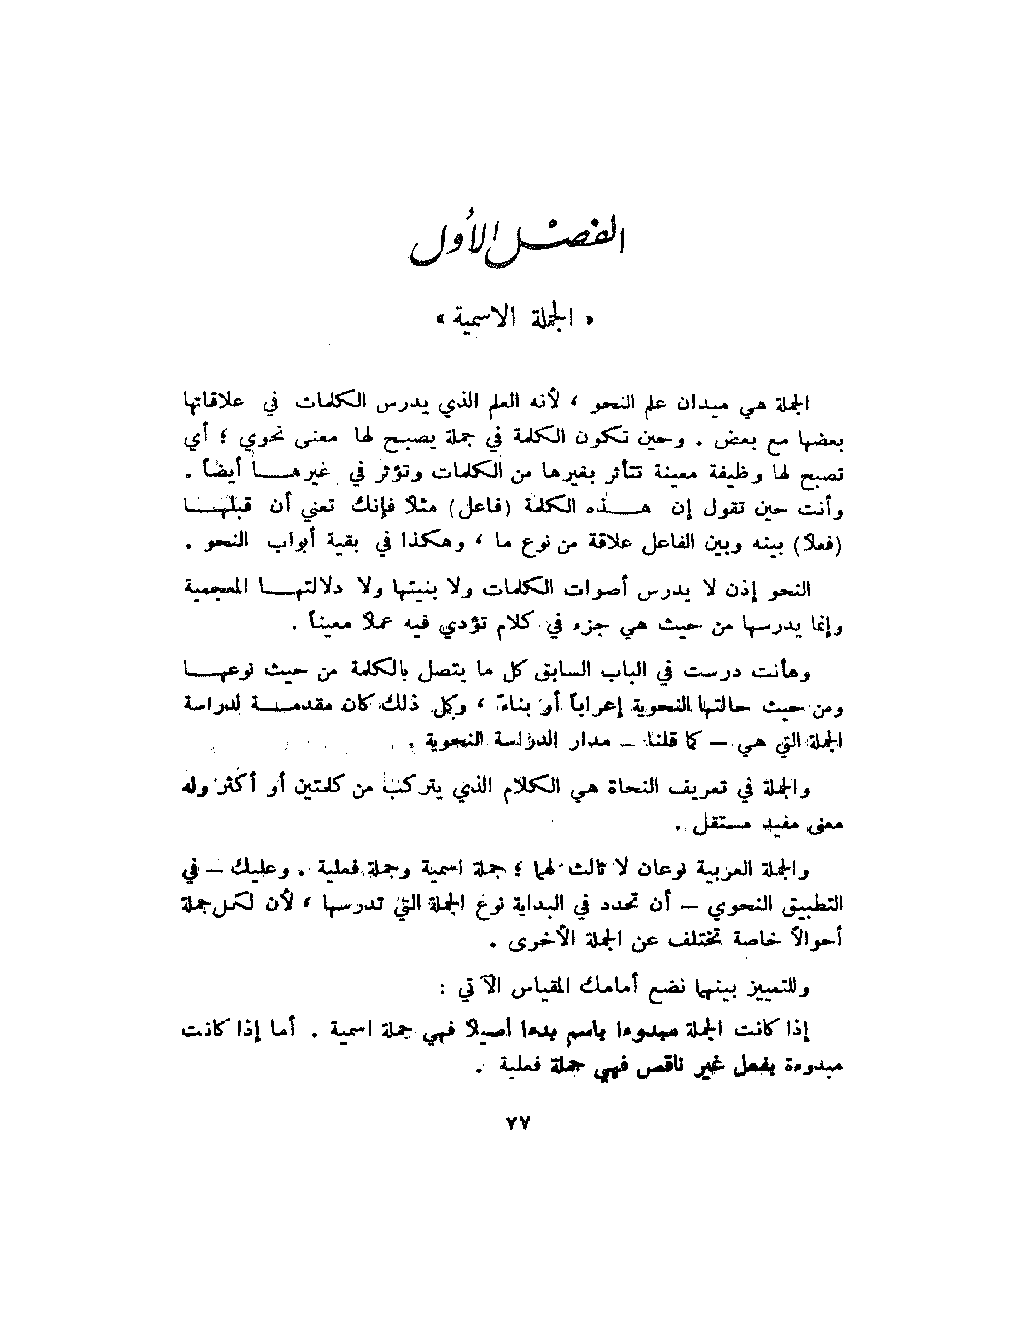 الفصل الأول
« الجملة الاسمية »
الجملة هي ميدان علم النحو ، لأنه العلم الذي يدرس الكلمات في علاقاتها
بعضها مع بعض . وحين تكون الكلمة في جملة يصبح لها معنى نحوي ؛ أي
تصبح لها وظيفة معينة تتأثر بغيرها من الكلمات وتؤثر في غيرهـــا أيضاً .
وأنت حين تقول إن هـــذه الكلمة (فاعل) مثلاً فإنك تعني أن قبلهـــا
(فعلاً) بينه وبين الفاعل علاقة من نوع ما ، وهكذا في بقية أبواب النحو .
النحو إذن لا يدرس أصوات الكلمات ولا بنيتها ولا دلالتهـــا المعجمية
وإنما يدرسها من حيث هي جزء في كلام تؤدي فيه عملاً معيناً .
وهأنت درست في الباب السابق كل ما يتصل بالكلمة من حيث نوعهـــا
ومن حيث حالتها النحوية إعراباً أو بناءً ، وكل ذلك كان مقدمـــة لدراسة
الجملة التي هي – كما قلنا – مدار الدراسة النحوية .
والجملة في تعريف النحاة هي الكلام الذي يتركب من كلمتين أو أكثر وله
معنى مفيد مستقل .
والجملة العربية نوعان لا ثالث لهما ؛ جملة اسمية وجملة فعلية . وعليك – في
التطبيق النحوي – أن تحدد في البداية نوع الجملة التي تدرسها ، لأن لكل جملة
أحوالاً خاصة تختلف عن الجملة الأخرى .
وللتمييز بينهما نضع أمامك المقياس الآتي :
إذا كانت الجملة مبدوءا باسم بدءا أصيلا فهي جملة اسمية . أما إذا كانت
مبدوءة بفعل غير ناقص فهي جملة فعلية .
٧٧